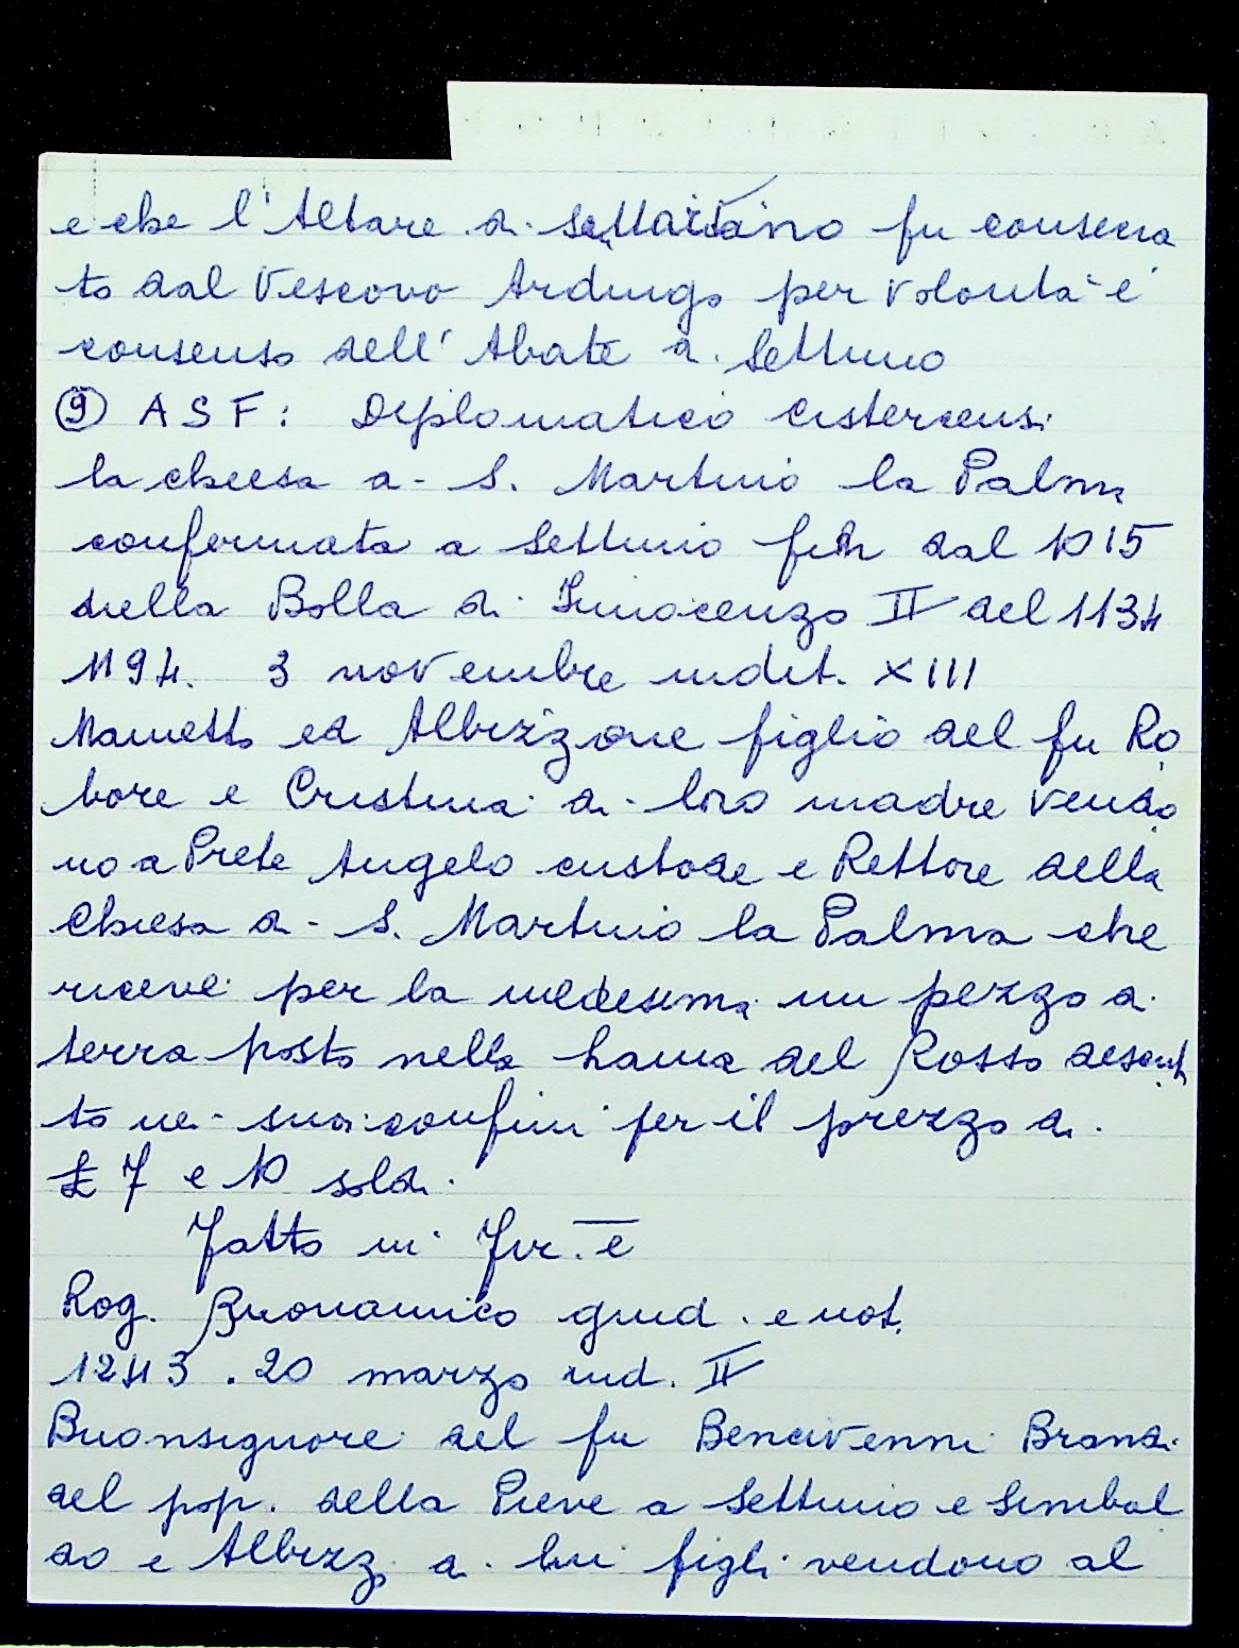 e che l'Altare di Settimo fu consecra
to dal Vescovo Ardingo per volontà e
consenso dell'Abate di Settimo
⑨ ASF: Diplomatico cistercensi
la chiesa di S. Martino la Palma
confermata a Settimo fin dal 1015
della Bolla di Innocenzo II del 1134
1194. 3 novembre indit. XIII
Mametto ed Albizzone figlio del fu Ro
bore e Cristina di loro madre vendo
no a Prete Angelo custode e Rettore della
Chiesa di S. Martino la Palma che
riceve per la medesima un pezzo di
terra posto nella hama del Rosso descrit
to nei suoi confini per il prezzo di
£ 7 e 10 soldi
Fatto in Fir.e
Rog. Buonamico giud. e not.
1243. 20 marzo ind. II
Buonsignore del fu Bencivenni Brandi
del pop. della Pieve a Settimo e Simbal
do e Albizzo di lui figli vendono al